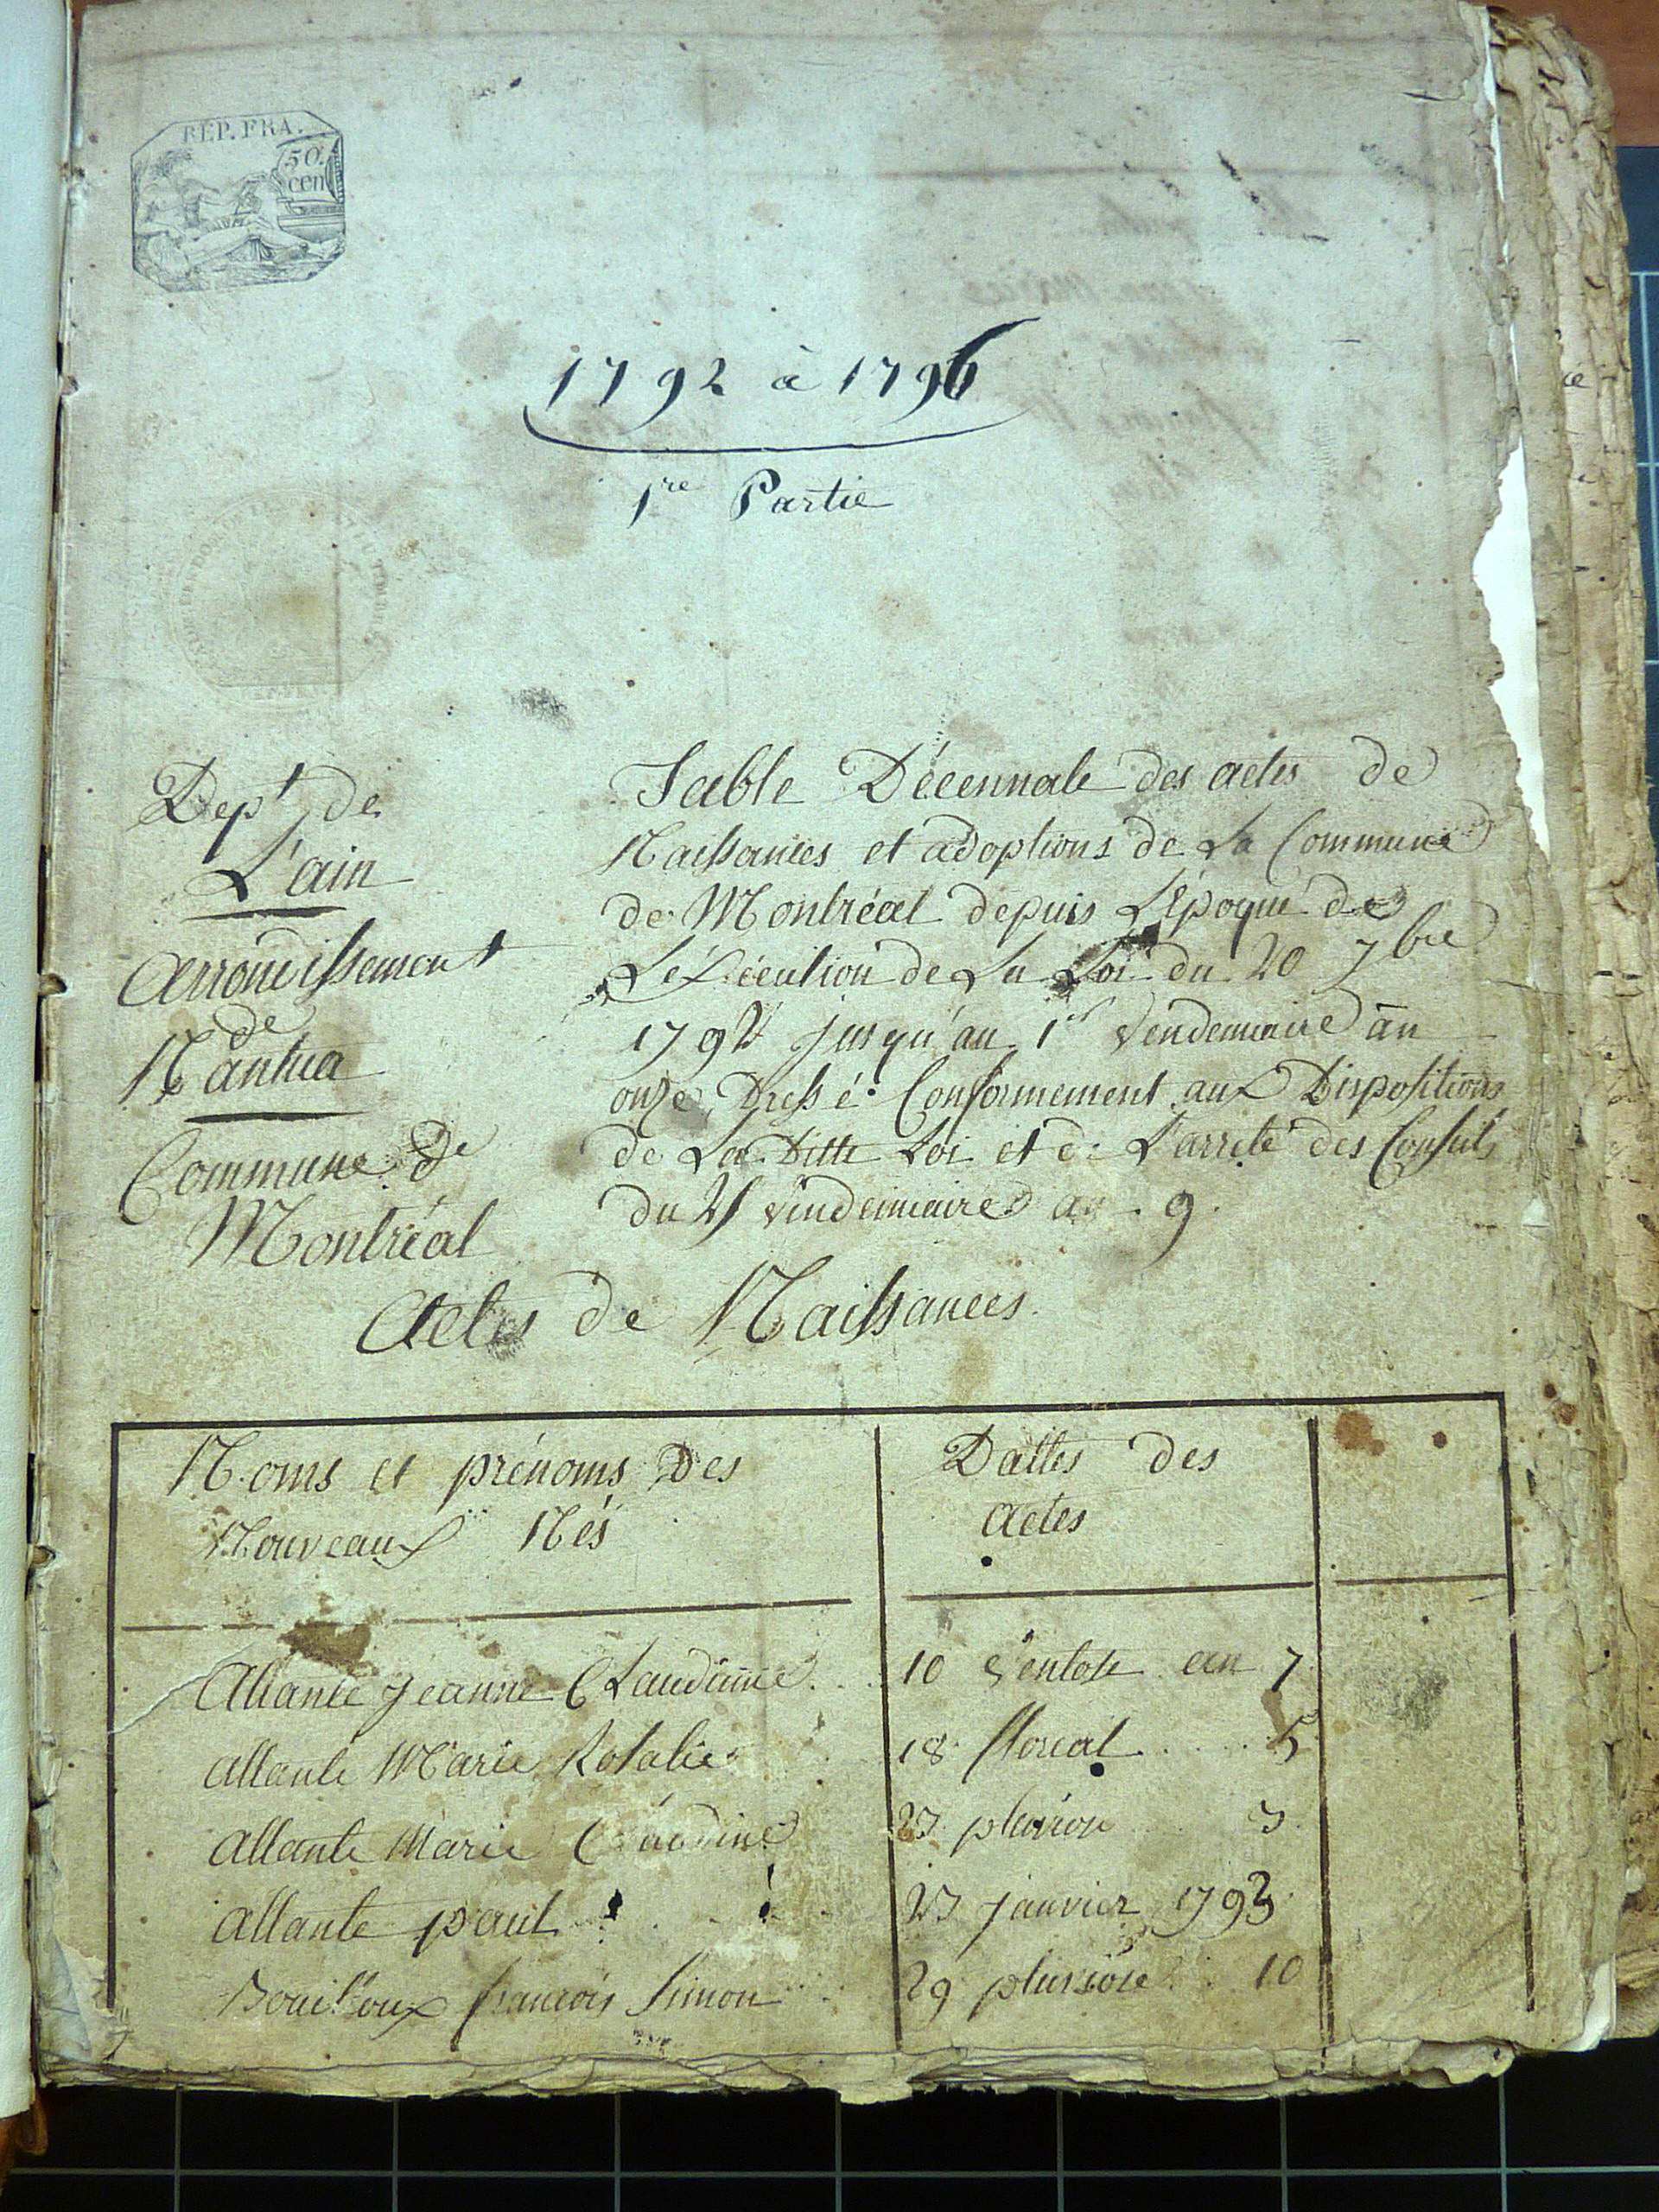 REP. FRA.
50.
cen
1792 à 1796
1re Partie
Dept de
L'ain
Arrondissement
de
Nantua
Commune de
Montréal
Table Décennale des actes de
Naissances et adoptions de La Commune
de Montréal depuis L'Epoque de
L'éxécution de La Loi du 20 7bre
1792 jusqu'au 1er Vendemiaire an
onze, Dressé Conformement aux Dispositions
de La ditte Loi et de L'arreté des Consuls
du 25 Vendemiaire an 9.
Actes de Naissances.
Noms et prénoms Des
Nouveaux Nés
Dattes des
actes
Allante Jeanne Claudinne 10 Ventose an 7
Allante Marie Rosalie 18 floreal 5
Allante Marie Claudine 23 pluviose 3
Allante paul 23 janvier 1793
Bouilloux françois Simon 29 pluviose 10